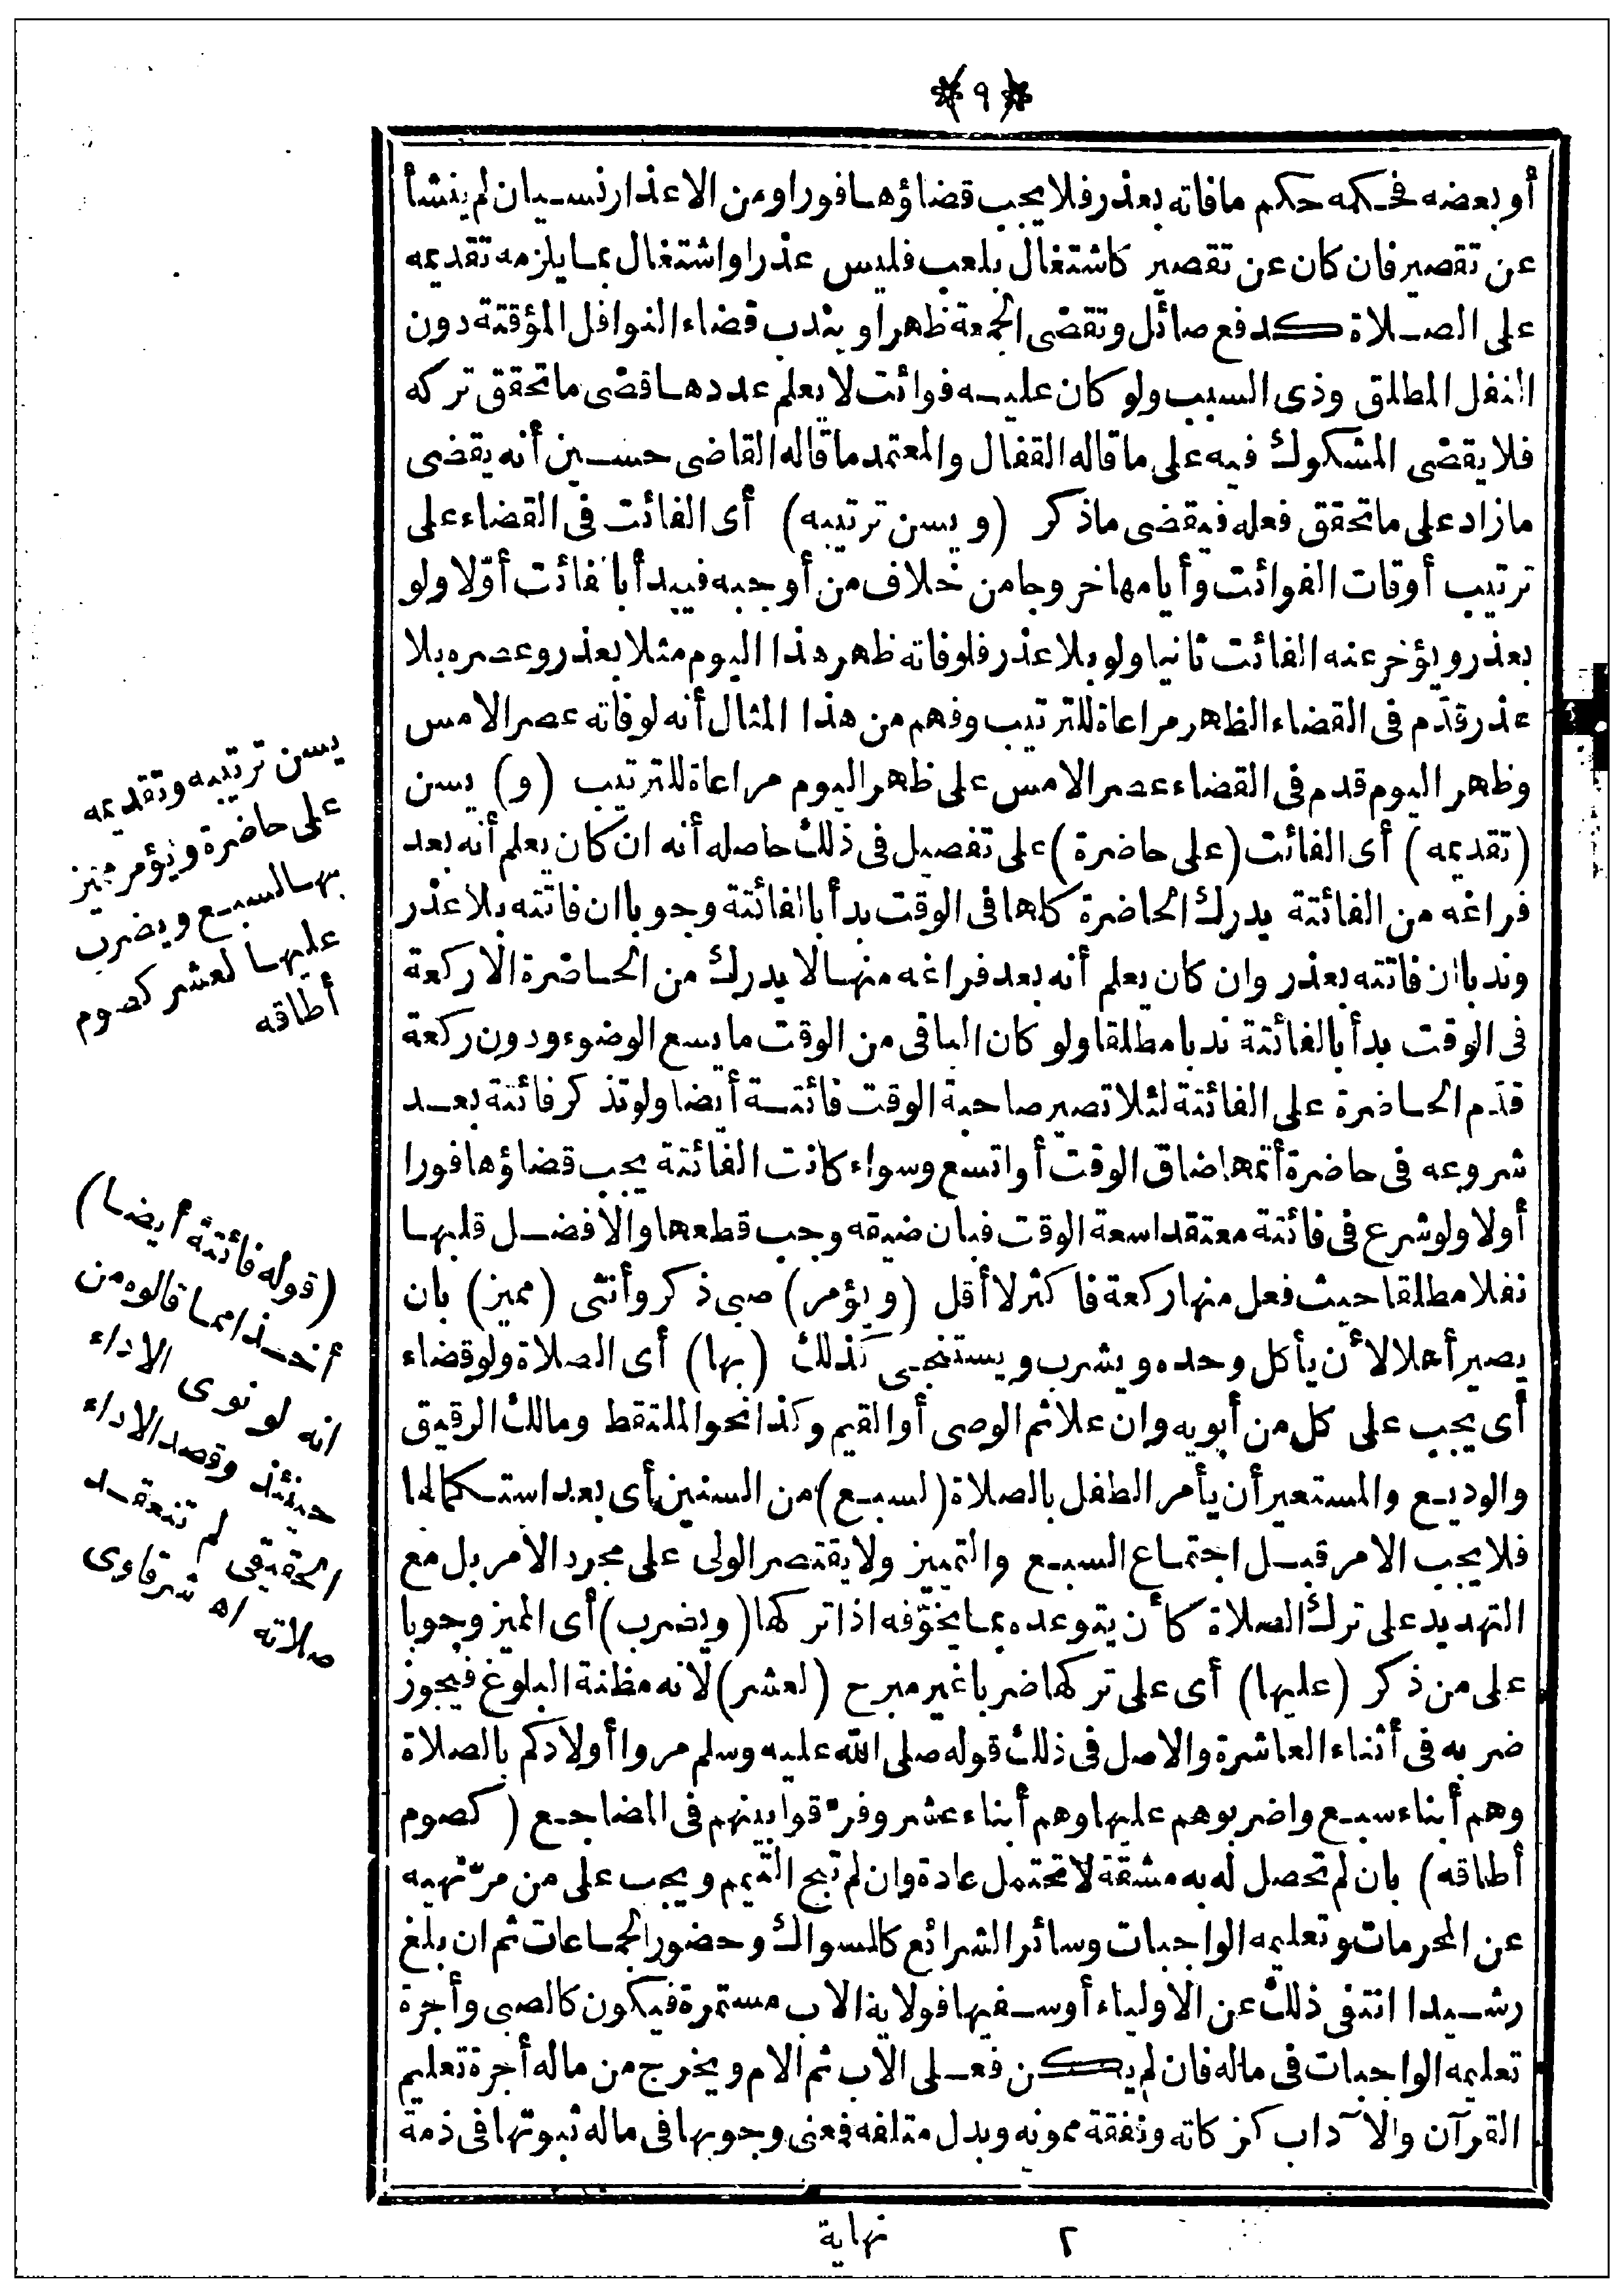 ٩
أو بعضه فحكمه حكم ما فاته بعذر فلا يجب قضاؤها فورا ومن الاعذار نسيان لم ينشأ
عن تقصير فان كان عن تقصير كاشتغال بلعب فليس عذرا واشتغال بما يلزمه تقديمه
على الصلاة كدفع صائل وتقضى الجمعة ظهرا ويندب قضاء النوافل المؤقتة دون
النفل المطلق وذى السبب ولو كان عليه فوائت لا يعلم عددها قضى ما تحقق تركه
فلا يقضى المشكوك فيه على ما قاله القفال والمعتمد ما قاله القاضى حسين أنه يقضى
ما زاد على ما تحقق فعله فيقضى ما ذكر (ويسن ترتيبه) أى الفائت فى القضاء على
ترتيب أوقات الفوائت وأيامها خروجا من خلاف من أوجبه فيبدأ بالفائت أوّلا ولو
بعذر ويؤخر عنه الفائت ثانيا ولو بلا عذر فلو فاته ظهر هذا اليوم مثلا بعذر وعصره بلا
عذر قدّم فى القضاء الظهر مراعاة للترتيب وفهم من هذا المثال أنه لو فاته عصر الامس
وظهر اليوم قدم فى القضاء عصر الامس على ظهر اليوم مراعاة للترتيب (و) يسن
(تقديمه) أى الفائت (على حاضرة) على تفصيل فى ذلك حاصله أنه ان كان يعلم أنه بعد
فراغه من الفائتة يدرك الحاضرة كلها فى الوقت بدأ بالفائتة وجوبا ان فاتته بلا عذر
وندبا ان فاتته بعذر وان كان يعلم أنه بعد فراغه منها لا يدرك من الحاضرة الا ركعة
فى الوقت بدأ بالفائتة ندبا مطلقا ولو كان الباقى من الوقت ما يسع الوضوء ودون ركعة
قدّم الحاضرة على الفائتة لئلا تصير صاحبة الوقت فائتة أيضا ولو تذكر فائتة بعد
شروعه فى حاضرة أتمها ضاق الوقت أو اتسع وسواء كانت الفائتة يجب قضاؤها فورا
أولا ولو شرع فى فائتة معتقدا سعة الوقت فبان ضيقه وجب قطعها والافضل قلبها
نفلا مطلقا حيث فعل منها ركعة فاكثر لا أقل (ويؤمر) صبى ذكر وأنثى (مميز) بان
يصير أهلا لأن يأكل وحده ويشرب ويستنجى كذلك (بها) أى الصلاة ولو قضاء
أى يجب على كل من أبويه وان علا ثم الوصى أو القيم وكذا نحو الملتقط ومالك الرقيق
والوديع والمستعير أن يأمر الطفل بالصلاة (لسبع) من السنين أى بعد استكمالها
فلا يجب الامر قبل اجتماع السبع والتمييز ولا يقتصر الولى على مجرد الأمر بل مع
التهديد على ترك الصلاة كأن يتوعده بما يخوّفه اذا تركها (ويضرب) أى المميز وجوبا
على من ذكر (عليها) أى على تركها ضربا غير مبرح (لعشر) لانه مظنة البلوغ فيجوز
ضربه فى أثناء العاشرة والاصل فى ذلك قوله صلى الله عليه وسلم مروا أولادكم بالصلاة
وهم أبناء سبع واضربوهم عليها وهم أبناء عشر وفرّقوا بينهم فى المضاجع (كصوم
أطاقه) بان لم تحصل له به مشقة لا تحتمل عادة وان لم تبح التيمم ويجب على من مرّ نهيه
عن المحرمات وتعليمه الواجبات وسائر الشرائع كالسواك وحضور الجماعات ثم ان بلغ
رشيدا انتفى ذلك عن الاولياء أو سفيها فولاية الاب مستمرة فيكون كالصبى وأجرة
تعليمه الواجبات فى ماله فان لم يكن فعلى الاب ثم الام ويخرج من ماله أجرة تعليم
القرآن والآداب كزكاته ونفقة ممونه وبدل متلفه فمعنى وجوبها فى ماله ثبوتها فى ذمة
يسن ترتيبه وتقديمه
على حاضرة ويؤمر مميز
بها لسبع ويضرب
عليها لعشر كصوم
أطاقه
(قوله فائتة أيضا)
أخذا مما قالوه من
انه لو نوى الاداء
حينئذ وقصد الاداء
الحقيقى لم تنعقد
صلاته اه شرقاوى
٢ نهاية